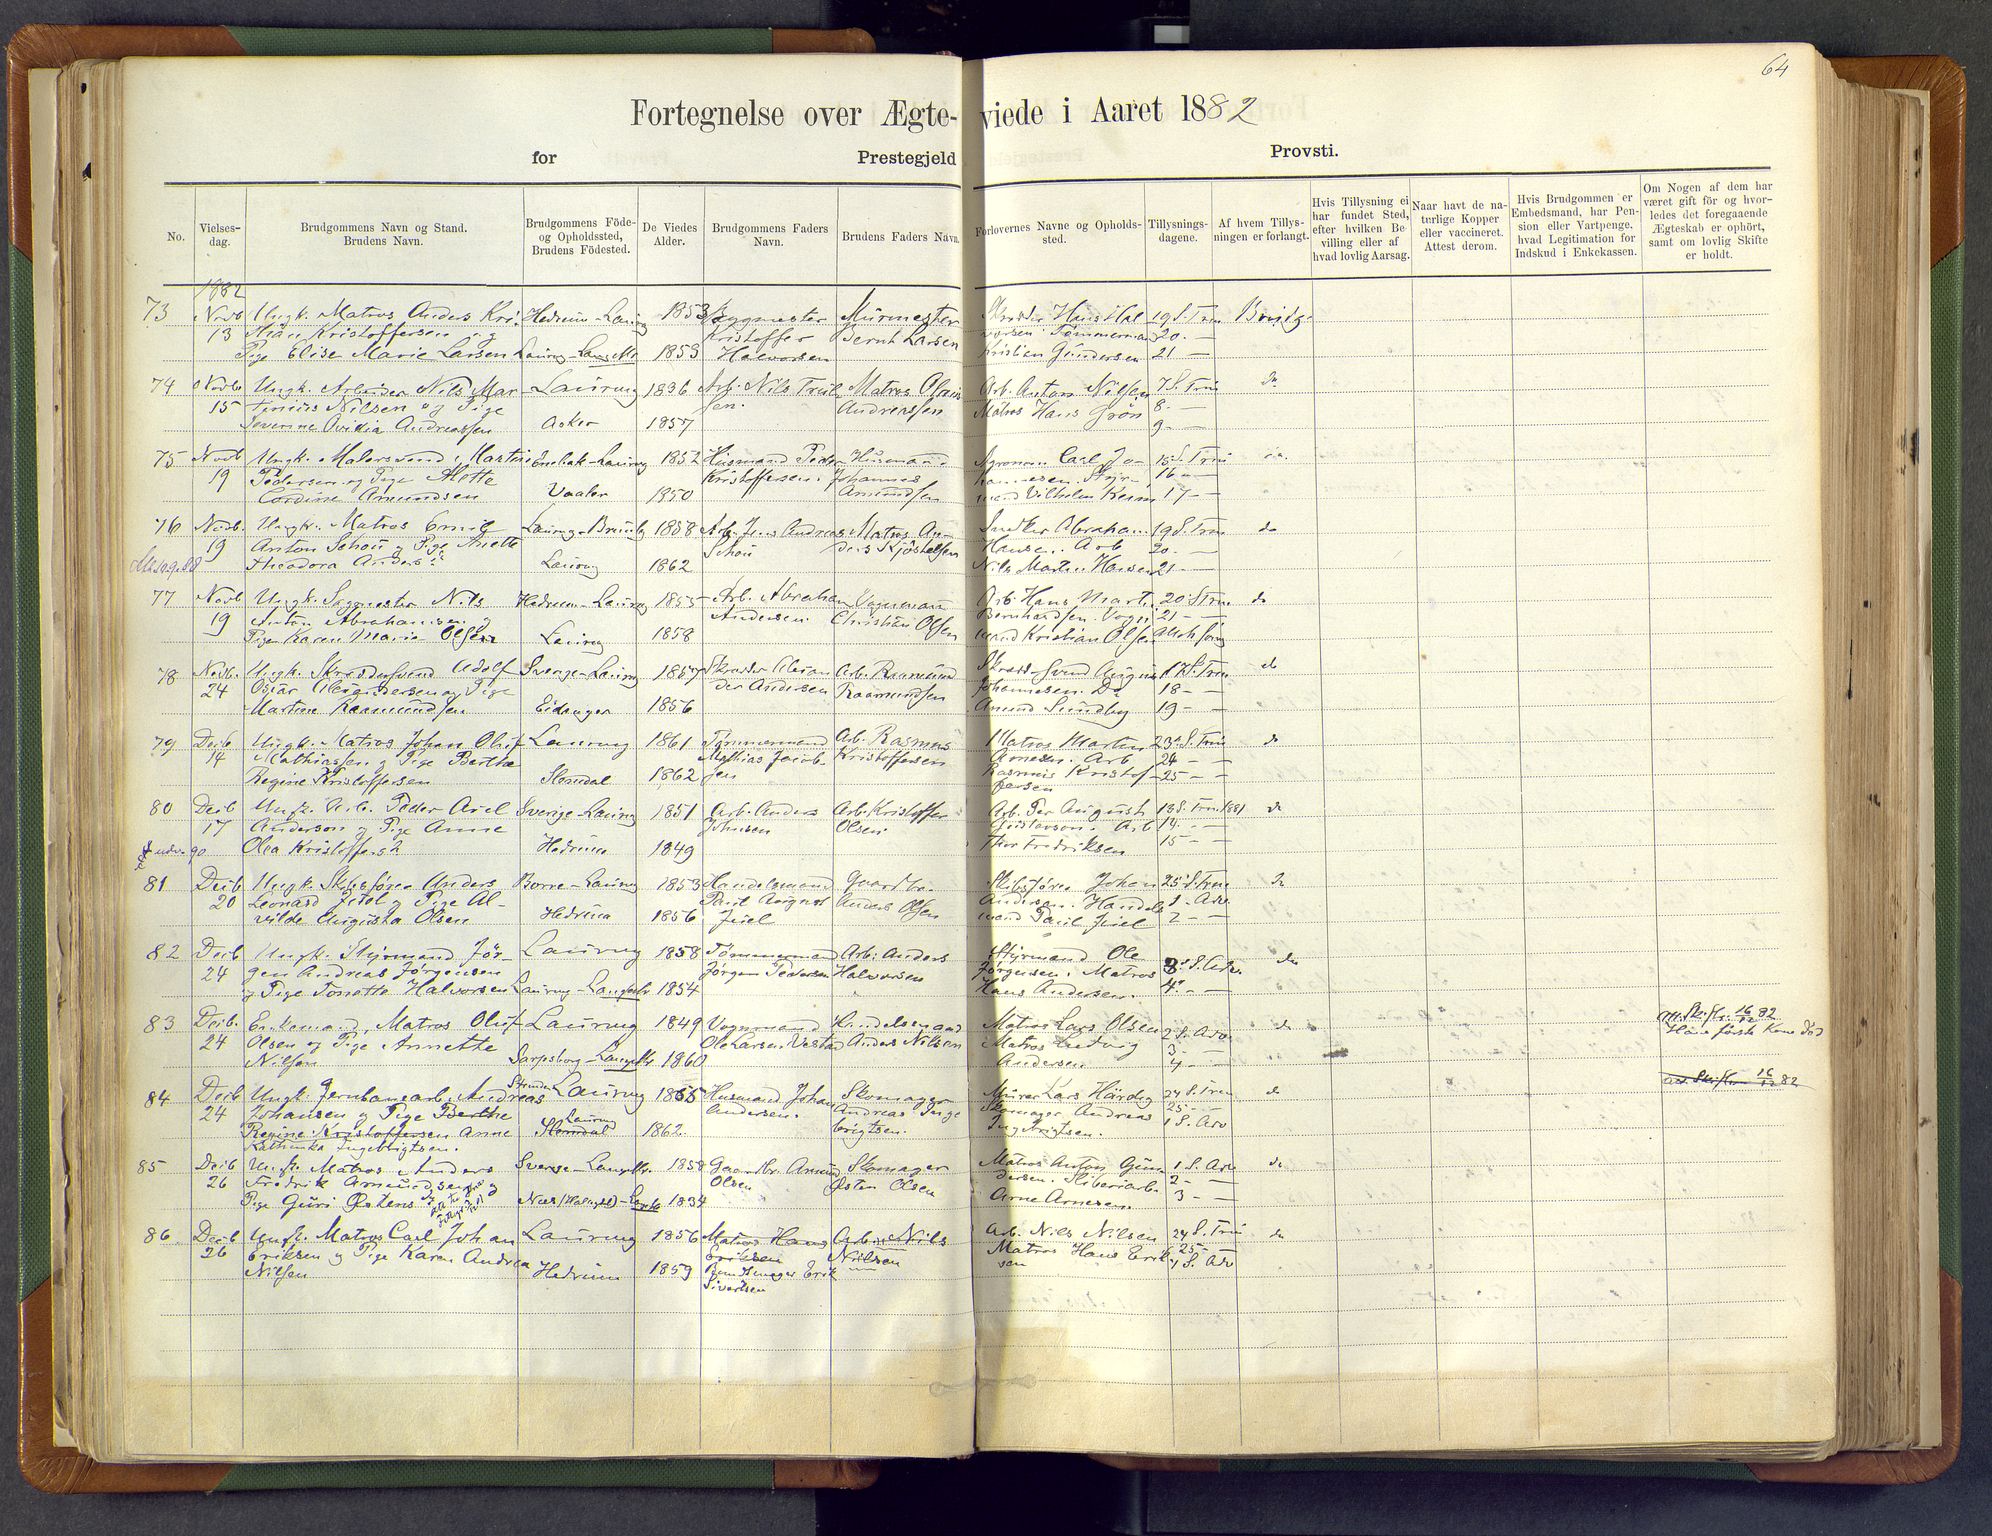 64
Fortegnelse over Ægte-viede i Aaret 1882
for Prestegjeld Provsti.
No.
Vielses-
dag.
Brudgommens Navn og Stand.
Brudens Navn.
Brudgommens Føde-
og Opholdssted,
Brudens Fødested.
De Viedes
Alder.
Brudgommens Faders
Navn.
Brudens Faders Navn.
Forlovernes Navne og Opholds-
sted.
Tillysnings-
dagene.
Af hvem Tillys-
ningen er forlangt.
Hvis Tillysning ei
har fundet Sted,
efter hvilken Be-
villing eller af
hvad lovlig Aarsag.
Naar havt de na-
turlige Kopper
eller vaccineret.
Attest derom.
Hvis Brudgommen er
Embedsmand, har Pen-
sion eller Vartpenge,
hvad Legitimation for
Indskud i Enkekassen.
Om Nogen af dem har
været gift før og hvor-
ledes det foregaaende
Ægteskab er ophørt,
samt om lovlig Skifte
er holdt.
1882
73 Novb Ungk. Matros Anders Kri- Hedrum-Laurvig 1853 Byggmester Murmester Hans Hal- 19 S. Trin Brudg.
13 Kristoffersen og Kristoffer Bernt Larsen vorsen Tømmermand 20 -
Pige Elise Marie Larsen Laurvig-Langestr 1853 Halvorsen Kristian Gundersen 21 -
74 Novb Ungk. Arbeider Nils Mar- Laurvig 1836 Arb. Nils Truls Matros Olaus Arb. Anton Nilsen 7 S. Trin do
15 tinius Nilsen og Pige sen. Andreassen Matros Hans Grøn 8. -
Severine Ovidia Andreassen Asker 1857 9 -
75 Novb Ungk. Malersvend Martin Enebak-Laurvig 1852 Husmand Peder Husmand Agronom Carl Jo- 15 S. Trin
19 Pedersen og Pige Alette Kristoffersen. Johannes hannesen. Styr- 16 -
Cordine Amundsen Vaaler 1850 Amundsen mand Vilhelm 17 -
76 Novb. Ungk. Matros Emil Laurvig- 1858 Arb. Jens Andreas Matros An- Snedker Abraham 19 S. Trin do
19 Anton Schou og Pige Anette Schou ders Kjøstelsen Hansen. Arb 20. -
Theodora Anders: Laurvig 1862 Nils Martin Hansen 21 -
77 Novb Ungk. Sagmester Nils Hedrum-Laurvig 1855 Arb. Abraham Vognmand Arb Hans Mart: 20 S Trin do
19 Anton Abrahamsen og Andersen Christian Olsen Bernhardsen. Vogn 21 -
Pige Karen Marie Olsen Laurvig 1858 mand Kristian Olsen
78 Novb. Ungk. Skræddersvend Adolf Sverge-Laurvig 1857 Skræder Alexan Arb. Raamund Skræd. Svend August 17 S. Trin do
24 Oscar Alexandersen og Pige der Andersen Raamundsen Johannesen. Do 18 -
Martine Raamundsen Eidanger 1856 Amund Sundby 19 -
79 Decb Ungk. Matros Johan Oluf Laurvig 1861 Tømmermand Arb. Rasmus Matros Martin 23 S. Trin do
14 Mathiassen og Pige Berthe Mathias Jacob- Kristoffersen Arnesen. Arb 24 -
Regine Kristoffersen Slemdal 1862 sen Rasmus Kristof- 25 -
fersen
80 Decb Ungk. Arb. Peder Axel Sverige-Laurvig 1851 Arb. Anders Arb. Kristoffer Arb. Per August 13 S. Trin 1881 do
17 Anderson og Pige Anne Johnsen Olsen Gustavson. Arb 14. -
udv. 90 Olea Kristoffers: Hedrum 1849 Thor Fredriksen 15 -
81 Decb Ungk. Skibsfører Anders Borre-Laurvig 1853 Handelsmand Gaardbr. Skibsfører Johan 25 S. Trin do
20 Leonard Juel og Pige Al- Paul August Anders Olsen Andersen. Handels 1 - Adv.
vilde Augusta Olsen Hedrum 1856 Juel mand Paul Juel 2 -
82 Decb Ungk. Styrmand Jør- Laurvig 1858 Tømmermand Arb: Anders Styrmand Ole 3 S. Adv. do
24 gen Andreas Jørgensen Jørgen Pedersen Halvorsen Jørgensen. Matros 4 -
og Pige Tonette Halvorsen Laurvig-Langestr 1854 Hans Andersen.
83 Decb. Enkemand, Matros Oluf Laurvig 1849 Vognmand Handelsmand Matros Lars Olsen 2 S. Adv do m. Skiftr. 16/12 82
24 Olsen og Pige Annette Ole Larsen Vestad Anders Nilsen Matros Ludvig 3 - Hans første Kone død
Nilsen Sarpsborg-Langestr. 1860 Andersen 4 -
84 Decb Ungk. Jernbanearb. Andreas Laurvig 1855 Husmand Johan Skomager Murer Lars Härdig 24 S. Trin do att. Skiftr 16/12 82
24 Johansen og Pige Berthe Laurvig Andersen. Andreas Inge Skomager Andreas 25 -
Regine Kristoffersen Anne Slemdal 1862. brigtsen. Ingebrigtsen. 1 S. Adv
Kathinka Ingebrigtsen.
85 Decb Ungk. Matros Anders Sverge-Langestr. 1858 Gaardbr. Amund Skomager Matros Anton Gun 1 S. Adv do
26 Fredrik Amundsen og Olsen Østen Olsen dersen. Sliberiarb. 2 -
Pige Guri Østens: 1834 Arne Arnesen. 3 -
86 Decb Ungk. Matros Carl Johan Laurvig 1856 Matros Hans Arb. Nils Arb. Nils Nilsen 24 S. Trin do
26 Eriksen og Pige Karen Andrea Eriksen Nilsen Matros Hans Erik- 25 -
Nilsen Hedrum 1859 Erik sen 1 S. Adv
Sivertsen